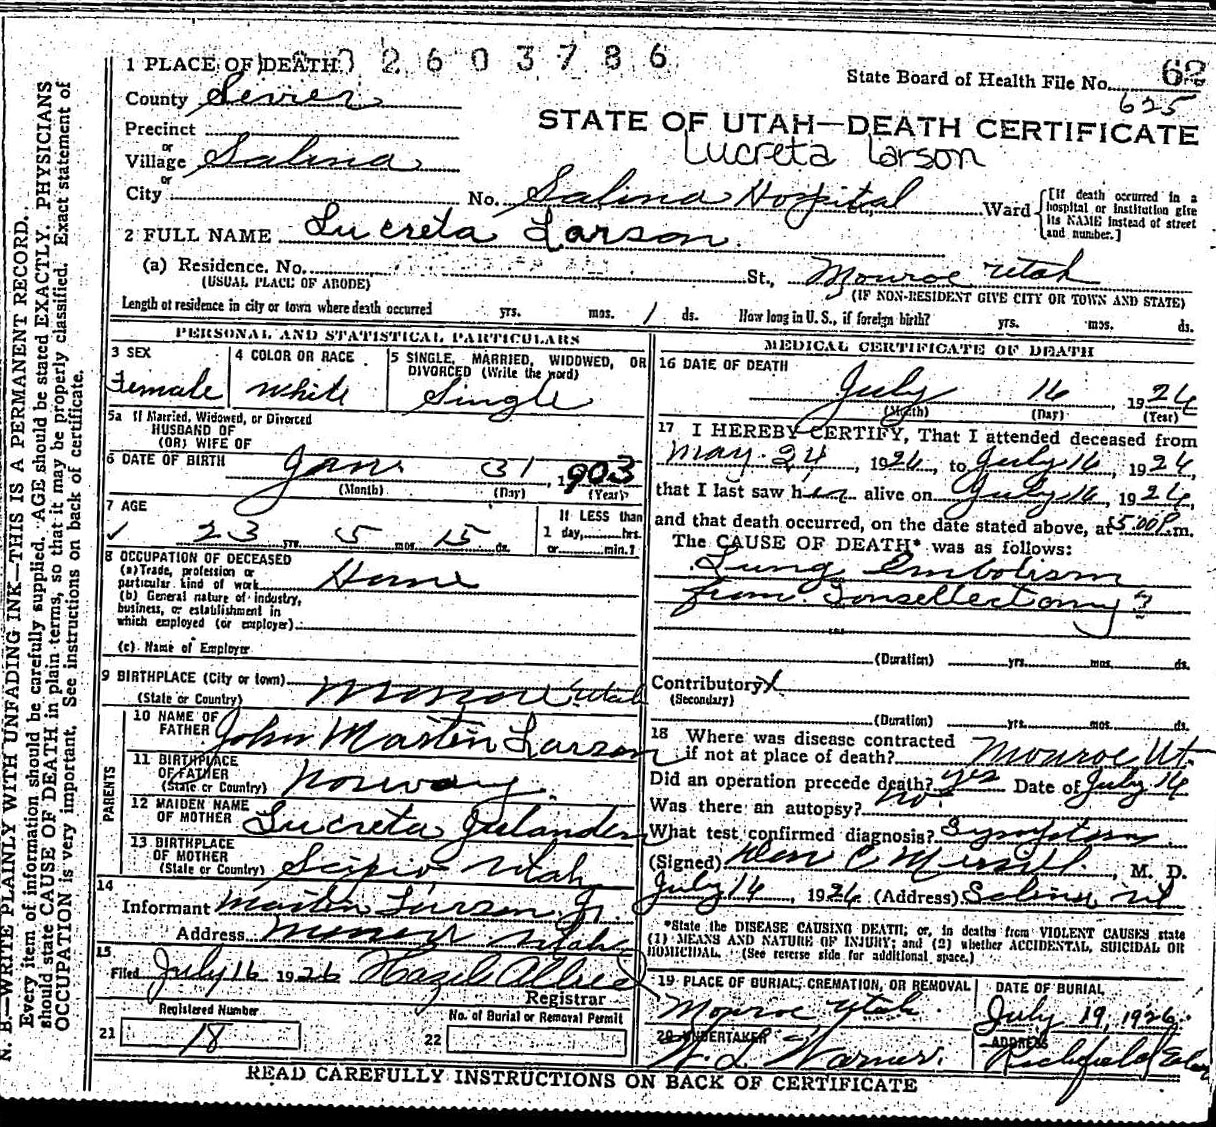 1 PLACE OF DEATH 2603786
State Board of Health File No. 62
625
County Sevier
STATE OF UTAH—DEATH CERTIFICATE
Lucreta Larson
Precinct
or
Village Salina
or
City
No. Salina Hospital St., Ward [If death occurred in a hospital or institution give its NAME instead of street and number.]
2 FULL NAME Lucreta Larson
(a) Residence. No. St., Monroe Utah
(USUAL PLACE OF ABODE) (IF NON-RESIDENT GIVE CITY OR TOWN AND STATE)
Length of residence in city or town where death occurred yrs. mos. 1 ds. How long in U. S., if foreign birth? yrs. mos. ds.
PERSONAL AND STATISTICAL PARTICULARS
3 SEX
Female
4 COLOR OR RACE
White
5 SINGLE, MARRIED, WIDOWED, OR DIVORCED (Write the word)
Single
5a If Married, Widowed, or Divorced
HUSBAND OF
(OR) WIFE OF
6 DATE OF BIRTH Jan. 31, 1903
(Month) (Day) (Year)
7 AGE
23 yrs. 5 mos. 15 ds.
If LESS than
1 day, hrs.
or min.?
8 OCCUPATION OF DECEASED
(a) Trade, profession or
particular kind of work Home
(b) General nature of industry,
business, or establishment in
which employed (or employer)
(c) Name of Employer
9 BIRTHPLACE (City or town) Monroe Utah
(State or Country)
PARENTS
10 NAME OF
FATHER John Martin Larson
11 BIRTHPLACE
OF FATHER
(State or Country) Norway
12 MAIDEN NAME
OF MOTHER Lucreta Julander
13 BIRTHPLACE
OF MOTHER
(State or Country) Scipio Utah
14
Informant Martin Larson Jr.
Address Monroe Utah
15
Filed July 16 1926 Hazel Allred
Registrar
Registered Number
21 18
No. of Burial or Removal Permit
22
MEDICAL CERTIFICATE OF DEATH
16 DATE OF DEATH
July 16, 1926
(Month) (Day) (Year)
17 I HEREBY CERTIFY, That I attended deceased from
May 24, 1926, to July 16, 1926,
that I last saw her alive on July 16, 1926,
and that death occurred, on the date stated above, at 5:00 P. m.
The CAUSE OF DEATH* was as follows:
Lung Embolism
from Tonsellectomy?
(Duration) yrs. mos. ds.
Contributory X
(Secondary)
(Duration) yrs. mos. ds.
18 Where was disease contracted
if not at place of death? Monroe Ut.
Did an operation precede death? yes Date of July 14
Was there an autopsy? no
What test confirmed diagnosis? Symptoms
(Signed) C Merrill, M. D.
July 14, 1926 (Address) Salina Ut
*State the DISEASE CAUSING DEATH; or, in deaths from VIOLENT CAUSES, state
(1) MEANS AND NATURE OF INJURY; and (2) whether ACCIDENTAL, SUICIDAL OR
HOMICIDAL. (See reverse side for additional space.)
19 PLACE OF BURIAL, CREMATION, OR REMOVAL
Monroe Utah.
DATE OF BURIAL
July 19, 1926
20 UNDERTAKER
Warner.
ADDRESS
Richfield
READ CAREFULLY INSTRUCTIONS ON BACK OF CERTIFICATE
N. B.—WRITE PLAINLY WITH UNFADING INK—THIS IS A PERMANENT RECORD.
Every item of information should be carefully supplied. AGE should be stated EXACTLY. PHYSICIANS
should state CAUSE OF DEATH in plain terms, so that it may be properly classified. Exact statement of
OCCUPATION is very important. See instructions on back of certificate.